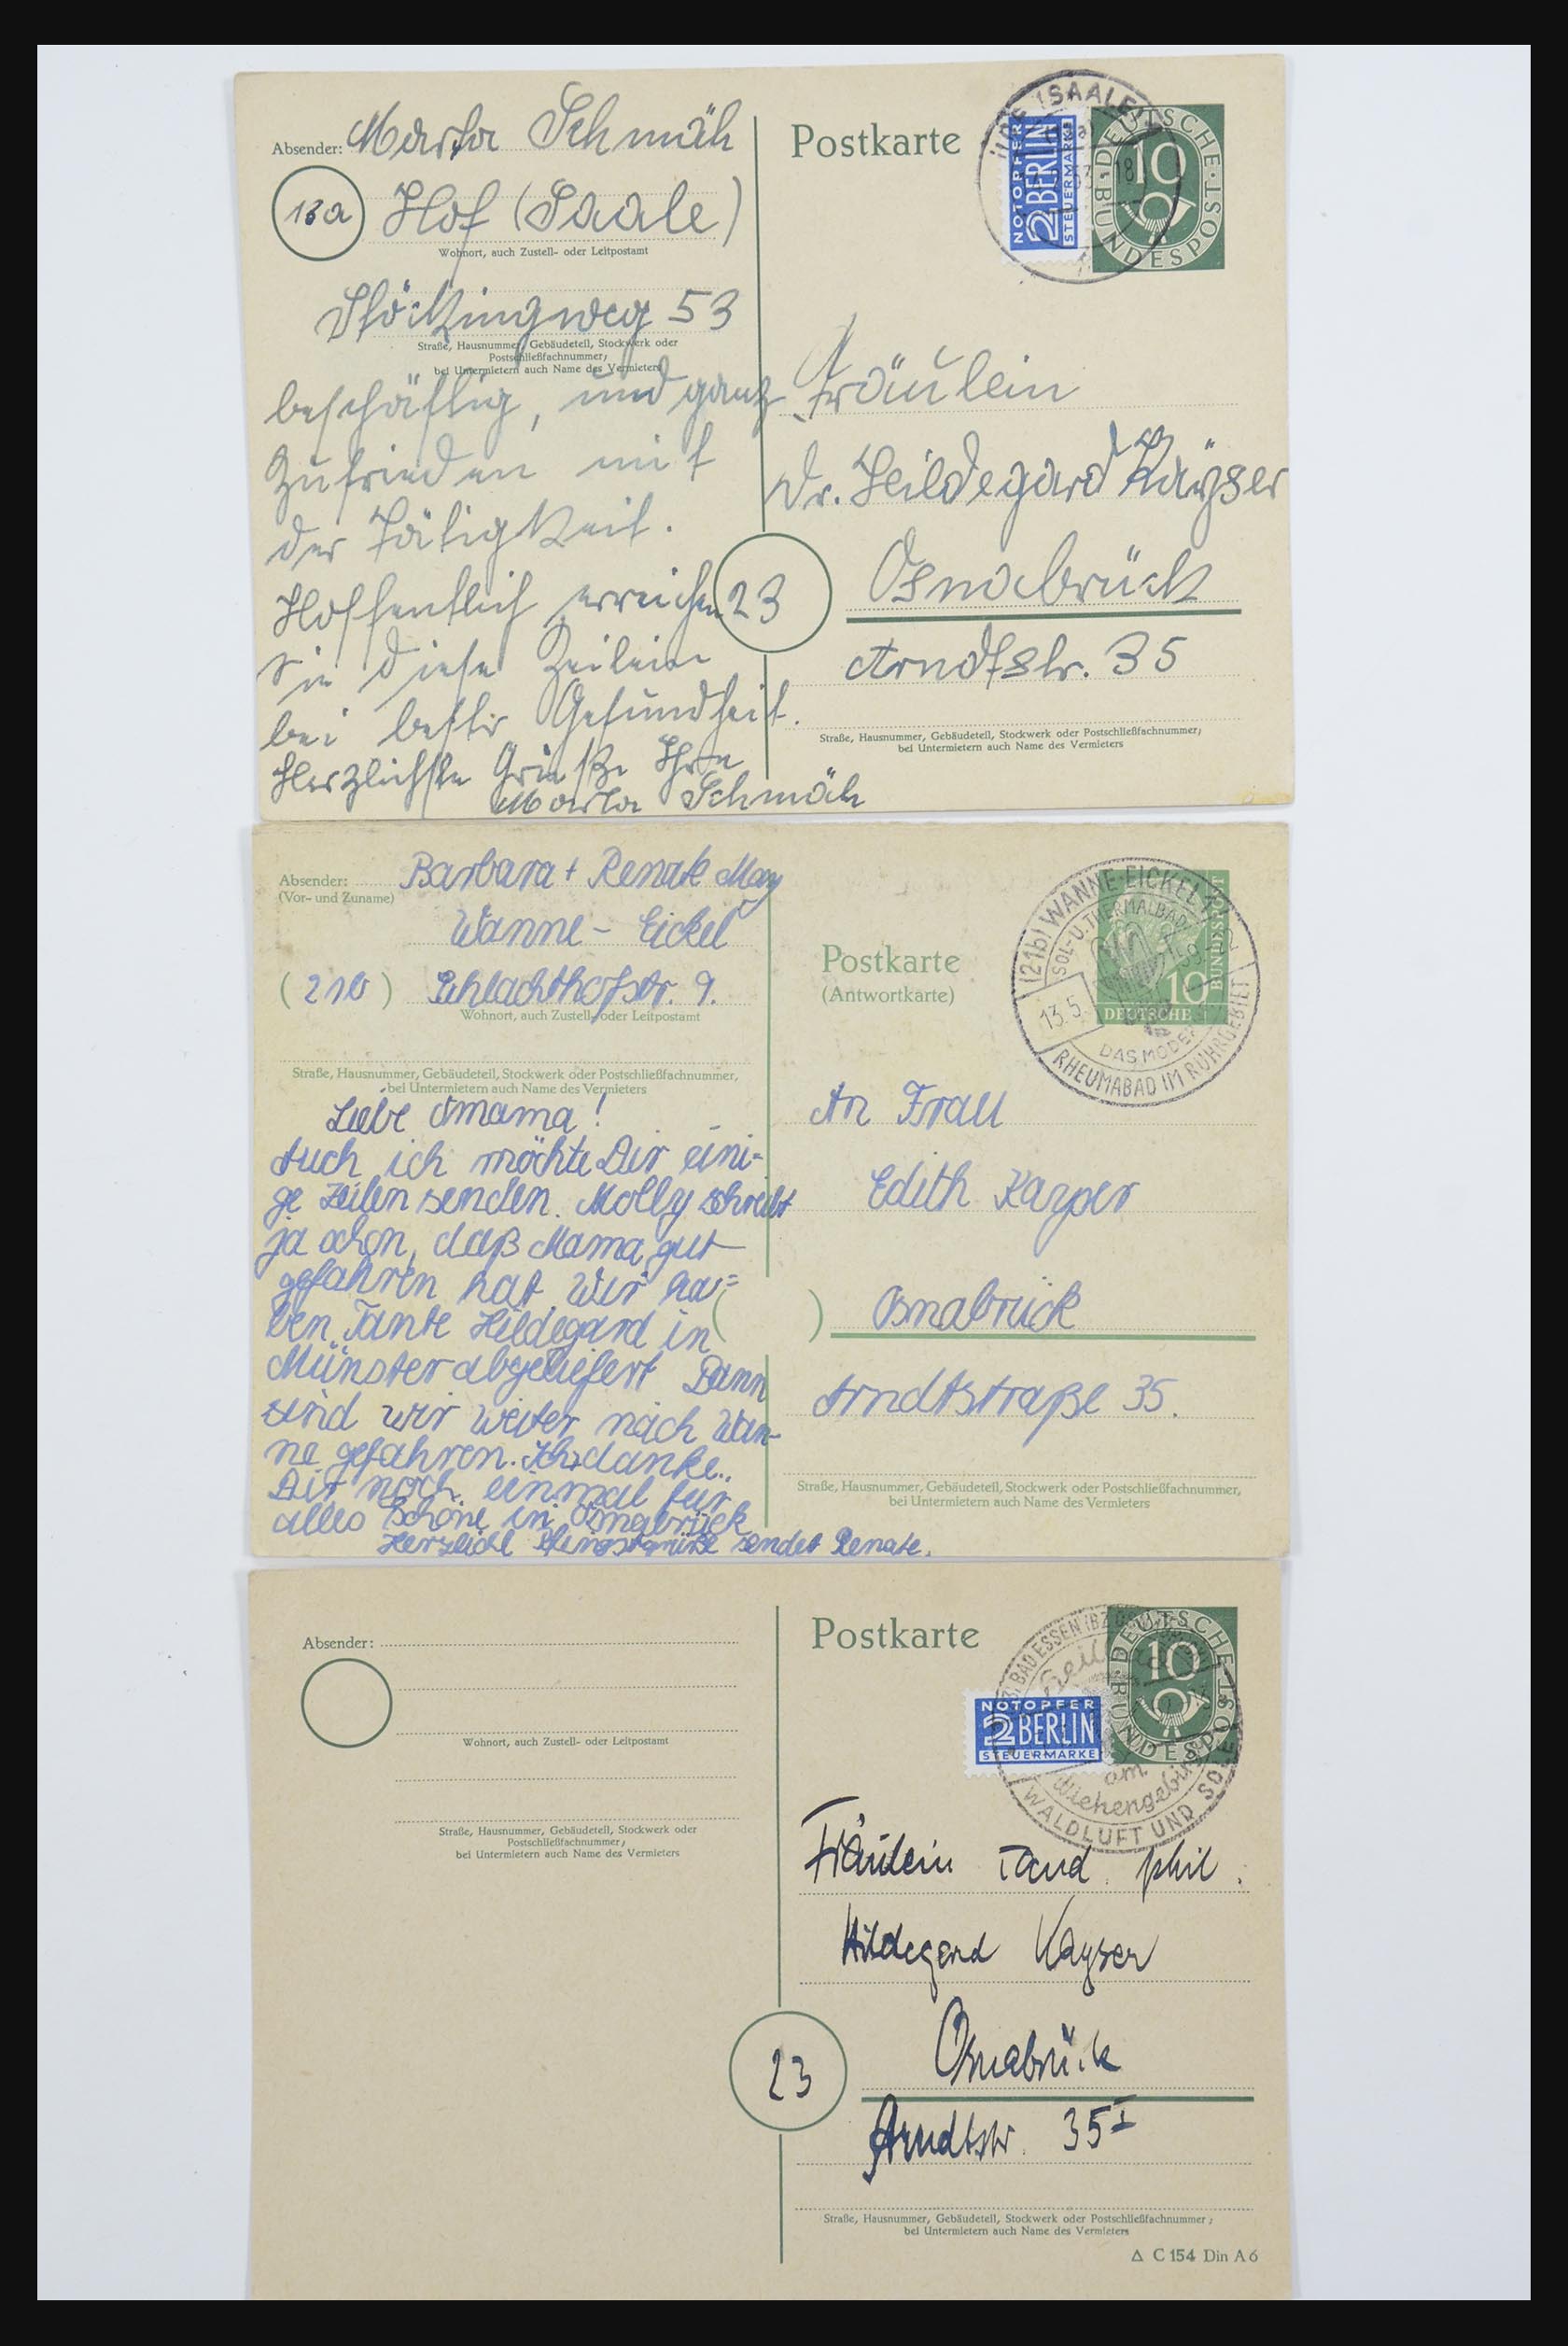 Absender: Marta Schmäh
13a Hof (Saale)
Wohnort, auch Zustell- oder Leitpostamt
53
Straße, Hausnummer, Gebäudeteil, Stockwerk oder
Postschließfachnummer;
bei Untermietern auch Name des Vermieters
beschäftig, und ganz
zufrieden mit
der Tätigkeit.
Hoffentlich erreichen
Sie diese Zeilen
bei bester Gesundheit.
Herzlichste Grüße Ihre
Marta Schmäh
Postkarte
HOF (SAALE)
53 18
NOTOPFER
2 BERLIN
STEUERMARKE
DEUTSCHE BUNDESPOST
10
Fräulein
Dr. Hildegard Kayser
23 Osnabrück
Arndtstr. 35
Straße, Hausnummer, Gebäudeteil, Stockwerk oder Postschließfachnummer;
bei Untermietern auch Name des Vermieters
Absender: Barbara + Renate May
(Vor- und Zuname)
Wanne-Eickel
(21b) Schlachthofstr. 9.
Wohnort, auch Zustell- oder Leitpostamt
Straße, Hausnummer, Gebäudeteil, Stockwerk oder Postschließfachnummer,
bei Untermietern auch Name des Vermieters
Liebe Omama!
Auch ich möchte Dir eini-
ge Zeilen senden. Molly schreibt
ja schon, daß Mama gut
gefahren hat. Wir ha=
ben Tante Hildegard in
Münster abgeliefert. Dann
sind wir weiter nach Wan-
ne gefahren. Ich danke
Dir noch einmal für
alles Schöne in Osnabrück
Herzliche Pfingstgrüße sendet Renate.
Postkarte
(Antwortkarte)
(21b) WANNE-EICKEL
SOL- U. THERMALBAD
13.5.
DAS MODERNE
RHEUMABAD IM RUHRGEBIET
10
DEUTSCHE
BUNDESPOST
An Frau
Edith Kayser
( ) Osnabrück
Arndtstraße 35.
Straße, Hausnummer, Gebäudeteil, Stockwerk oder Postschließfachnummer,
bei Untermietern auch Name des Vermieters
Absender:
Wohnort, auch Zustell- oder Leitpostamt
Straße, Hausnummer, Gebäudeteil, Stockwerk oder
Postschließfachnummer;
bei Untermietern auch Name des Vermieters
Postkarte
BAD ESSEN (BZ
am
Wiehengebirge
WALDLUFT UND SOLE
NOTOPFER
2 BERLIN
STEUERMARKE
DEUTSCHE BUNDESPOST
10
Fräulein cand. phil.
Hildegard Kayser
23 Osnabrück
Arndtstr. 35 I
Straße, Hausnummer, Gebäudeteil, Stockwerk oder Postschließfachnummer;
bei Untermietern auch Name des Vermieters
Δ C 154 Din A 6